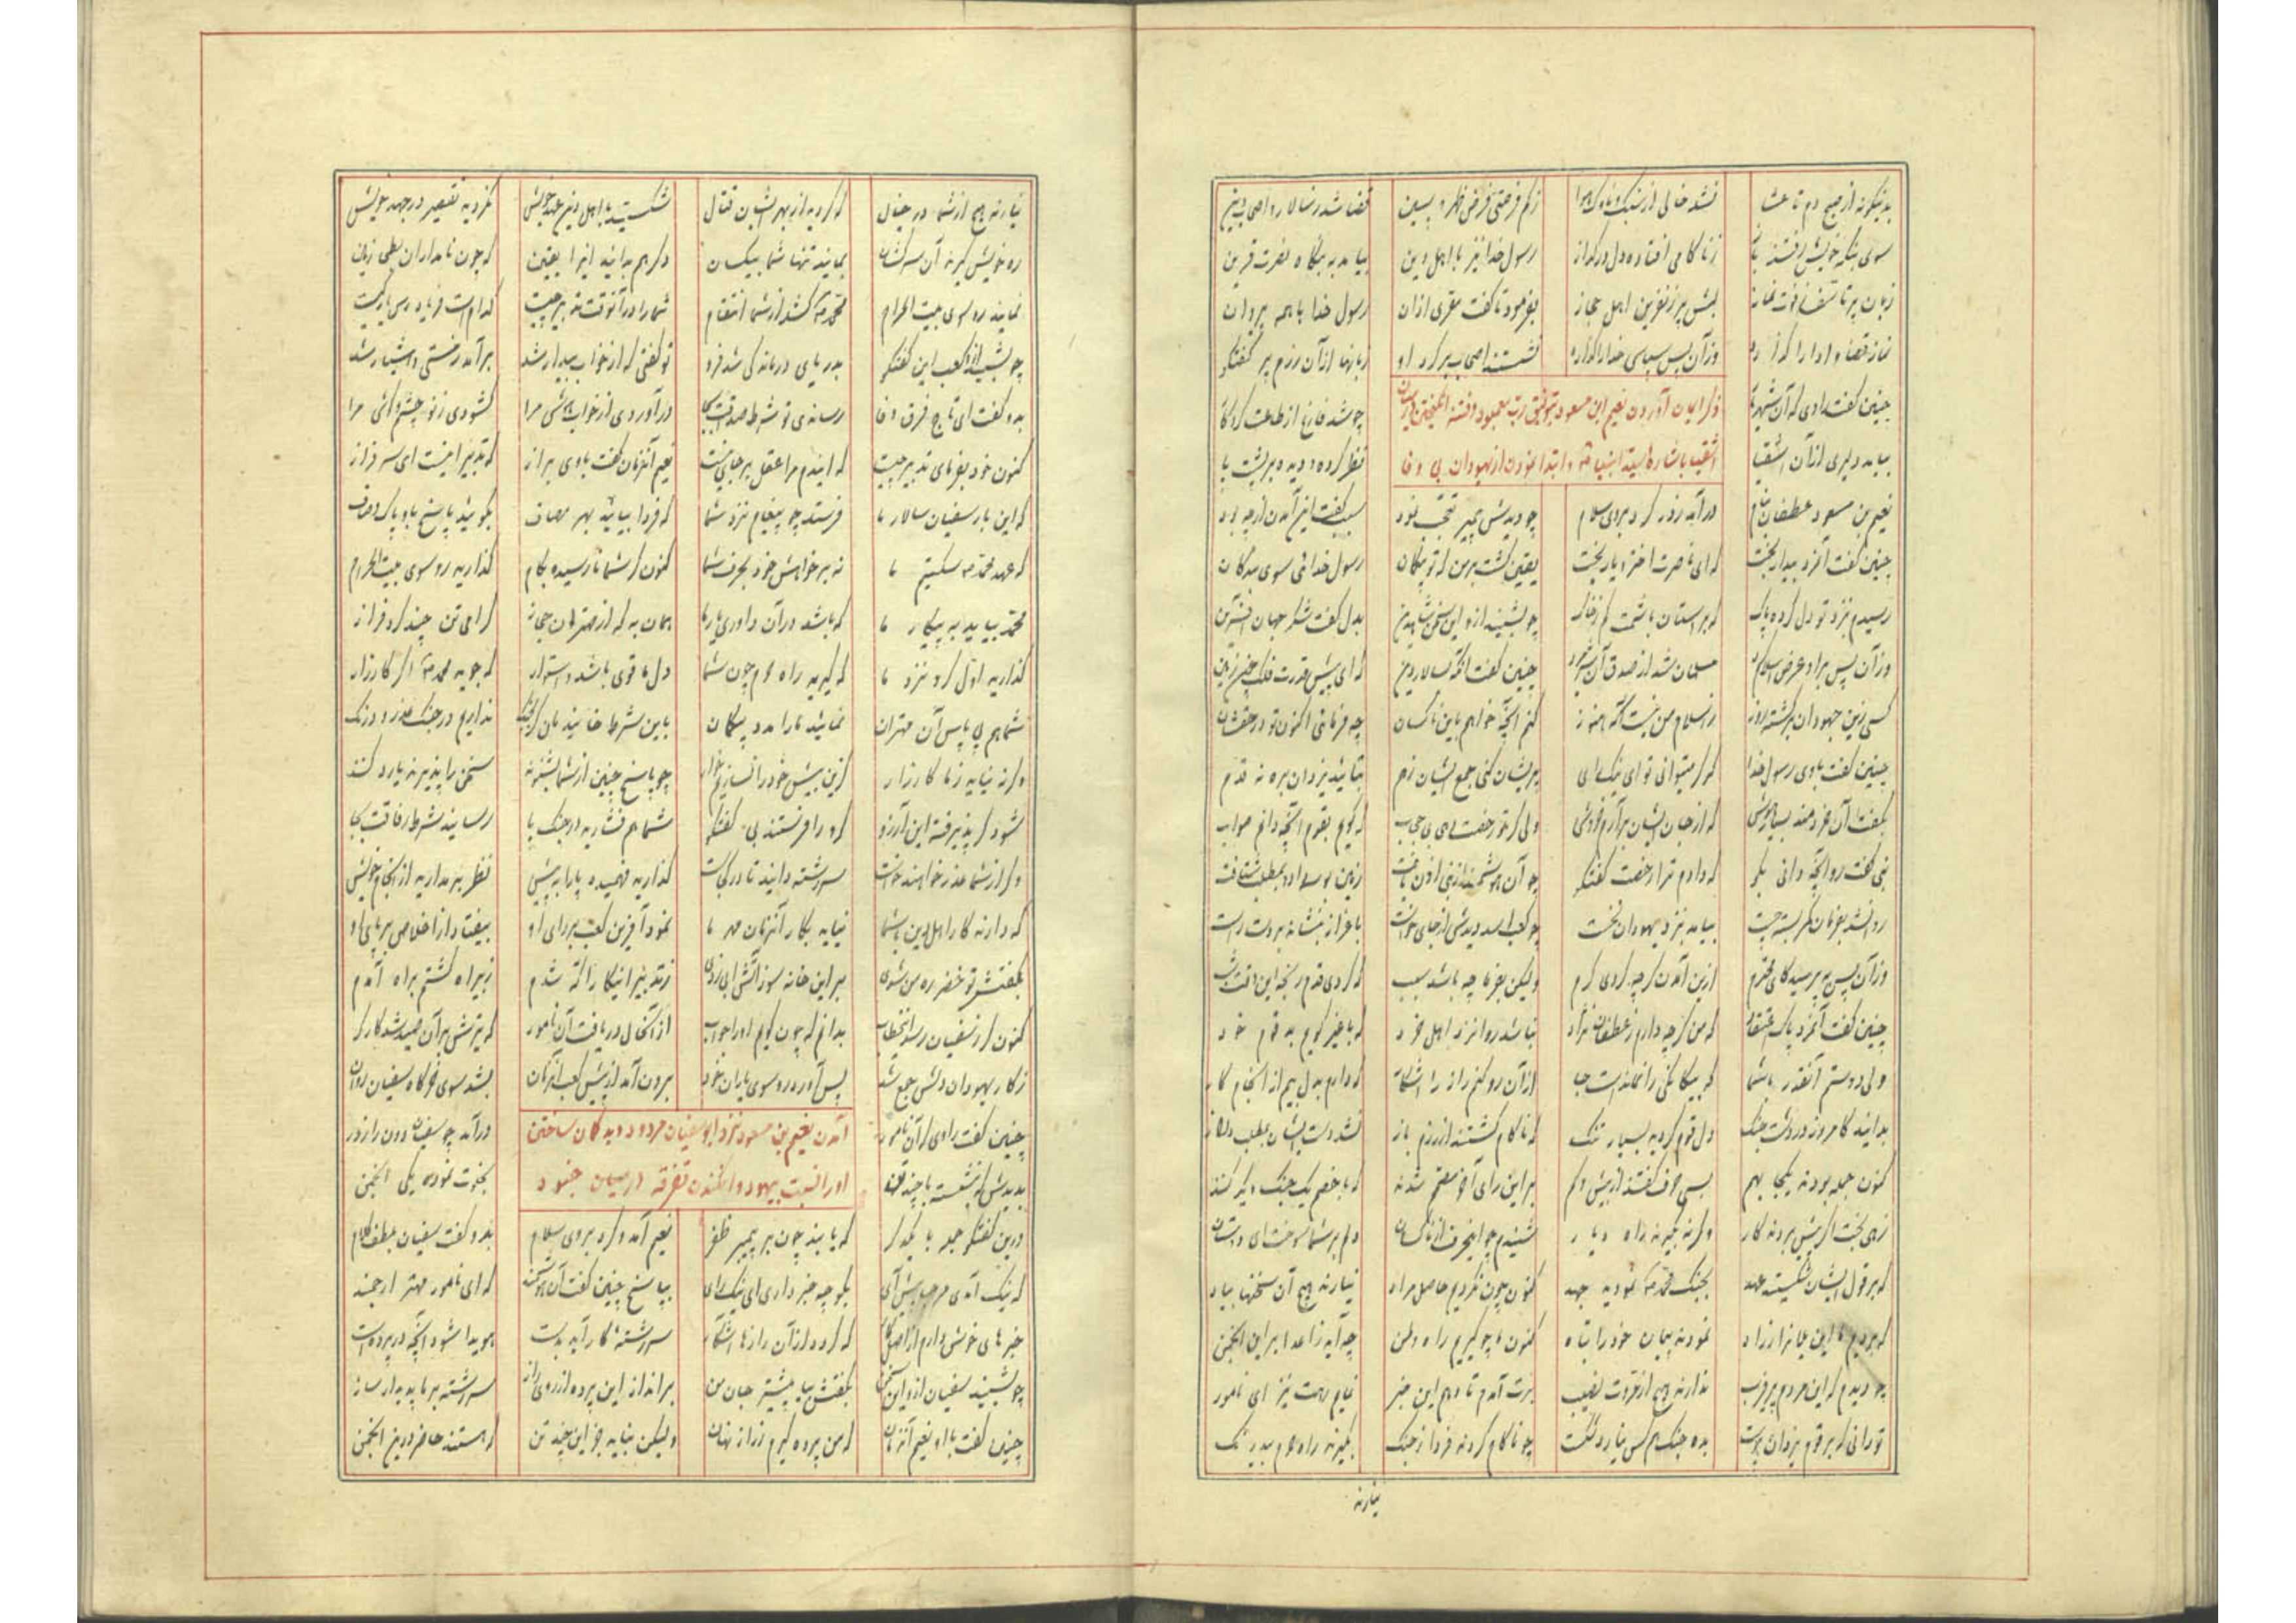 بدینگونه از صبح دم تا عشا نشد خالی از سنگ و ناوک هوا زکم فرصتی فرض ظهر و پسین قضا شد ز سالار و اصحاب دین
سوی بنگه خویش رفتند باز زناکامی افتاده دل در گداز رسول خدا نیز با اهل دین بیامد به بنگاه نصرت قرین
زبان پر تاسف ز فوت نماز لبش پر ز نفرین اهل حجاز بفرمود تا گفت مقری اذان رسول خدا با همه پیروان
نماز قضا و ادا را گذارد وز آن پس سپاس خدا را گذارد نشستند اصحاب بر گرد او زبانها از آن رزم پر گفتگو
چنین گفت راوی که آن شهریار چو شد فارغ از طاعت کردگار
ذکر ایمان آوردن نعیم ابن مسعود بتوفیق رب معبود و فتنه انگیختن در میان
اشقیا باشاره سید انبیا و ابتدا نمودن از یهودان بی وفا
بیامد دلیری از آن اشقیا نظر کرده و دیده بر پشت پا
نعیم بن مسعود غطفان بنام درآمد ز در کرد بر وی سلام چو دیدش پیمبر تعجب نمود سبب گفت این آمدن از چه بود
چنین گفت آنمرد بیدار بخت که ای ناصرت اختر و یار بخت یقین گشت بر من که تو بیگمان رسول خدائی سوی بندگان
رسیدم بنزد تو دل کرده پاک که بر آستان باشمت کم ز خاک چو بشنید از او این سخن شاه دین بدل گفت شکر جهان آفرین
وز آن پس بر او عرض اسلام کرد مسلمان شد از صدق آن شیرمرد چنین گفت آنگه بسالار دین که ای پیش قدرت فلک چون زمین
کسی زین جهودان برگشته روز ز اسلام من نیست آگه هنوز کنم آنچه خواهم باین ناکسان چه فرمائی اکنون تو در حقشان
چنین گفت با وی رسول خدا که گر میتوانی تو ای نیک رای پریشان کنی جمع ایشان ز هم بتائید یزدان بره نه قدم
بگفت آن خردمند بسیار هوش که از جان ایشان برآرم خروش ولی گر تو رخصت دهی بی حجاب که گویم بقوم آنچه دانم صواب
نبی گفت رو آنچه دانی بگو که دادم ترا رخصت گفتگو چو آن هوشمند از نبی اذن یافت زمین بوسه داد و بمطلب شتافت
روان شد بفرمان کمر بسته چست بیامد بنزد یهودان نخست چو کعب اسد دیدش از جای خواست باعزاز بنشاند بر دست راست
وز آن پس بپرسید کای محترم ازین آمدن گرچه کردی کرم ولیکن بفرما چه باشد سبب که کردی قدم رنجه این وقت شب
چنین گفت آنمرد پاک اعتقاد که من گرچه دارم ز غطفان نژاد نباشد روا نزد اهل خرد که با غیر گویم بد قوم خود
ولی دوستم آنقدر باشما که بیگانگی را نمانداست جا از آن رو کنم راز را آشکار که دارم بدل بیم از انجام کار
بدانید کامروز در دشت جنگ دل قوم گردید بسیار تنگ که ناکام گشتند از رزم باز نشد دست ایشان بمطلب دراز
کنون جمله بودند یکجا بهم بسی حرف گفتند از بیش و کم بر این رای آخر مصمم شدند که با خصم یک جنگ دیگر کنند
زهی بخت اگر پیش بردند کار وگرنه بگیرند راه دیار شنیدم چو این حرف از آن ناکسان دلم بر شما سوخت ای دوستان
که بر قول ایشان شکسته عهد بجنگ محمد نمودید جهد کنون چون نکردیم حاصل مراد نیارند هیچ آن سخنها بیاد
نمودند پیمان خود را تباه کنون هم چو گیریم راه وطن چه آید ز اعدا بر این انجمن
چو دیدم که این مردم پر فریب ندارند هیچ از مروت نصیب برت آمدم تا دهم این خبر نمایم رهت نیز ای نامور
تو رانی که بر قوم یزدان پرست بده جنگ هم کس نیارد شکست چو ناکام گردند فردا ز جنگ بگیرند راه حرم بیدرنگ
نیارند
نیارند هیچ از شما در خیال که گردید از بهر ایشان قتال شکستید با اهل دین عهد خویش نکردید تقصیر در جهد خویش
ره خویش گیرند آن سرکشان بمانید تنها شما بیکسان دگر هم بدانید این را یقین که چون نامداران بطحی زمین
نمایند رو سوی بیت الحرام محمد کشد از شما انتقام شما را در آنوقت تدبیر چیست کدام است فریاد رس یار کیست
چو بشنید ازو کعب این گفتگو بدریای درماندگی شد فرو تو گفتی که از خواب بیدار شد برآمد ز مستی و هشیار شد
بدو گفت ای تاج فرق وفا رساندی تو شرط صداقت بجا درآوردی از خواب بیهشی مرا گشودی ز نو چشم و گوشی مرا
کنون خود بفرمای تدبیر چیست که ایندم مرا عقل بر جای نیست نعیم آنزمان گفت با وی براز که تدبیر اینست ای سرفراز
که این بار سفیان سالار ما فرستد چو پیغام نزد شما که فردا بیائید بهر مصاف بگوئید پاسخ باو پاک و صاف
که عهد محمد شکستیم ما نه بر خواهش خود بحرف شما کنون گر شما نارسیده بکام گذارید رو سوی بیت الحرام
محمد بیاید به پیکار ما که باشد در آن داوری یار ما همان به که از مهتران حجاز گرامی تنی چند گردن فراز
گذارید اول گرو نزد ما که گیرید راه حرم چون شما دل ما قوی باشد و استوار که جوید محمد اگر کارزار
شما هم پی پاس آن مهتران نمائید ما را مدد بیگمان باین شرط خانید مان گر بجنگ نداریم در جنگ عذر و درنگ
وگرنه نیاید ز ما کارزار کزین بیش خود را نسازیم خوار چو پاسخ چنین از شما بشنوند سخن را پذیرند یا رد کنند
شود گر پذیرفته این آرزو گرو را فرستند بی گفتگو شما هم فشارید در جنگ پا رسانید شرط رفاقت بجا
وگر از شما عذر خواهند خواست سررشته دانید تا در کجاست گذارید فهمیده پا را به پیش نظر برمدارید از انجام خویش
که دارند کار اهل دین باشما نیاید بکار آنزمان مهر ما نمود آفرین کعب بر رای او بیفتاد از اخلاص بر پای او
بگفتش تو خضر ره من شوی بر این خانه سوز آتش آبی زدی ز تدبیر اینکار آگه شدم ز بیراه گشتم براه آمدم
کنون گر ز سفیان رسد این خطاب بدانم که چون گویم او را جواب از آنحال دریافت آن نامور که تیرش بر آن صید شد کارگر
ز کار یهودان دلش جمع شد پس آورد رو سوی یاران خود برون آمد از پیش کعب آنزمان بشد سوی خرگاه سفیان روان
چنین گفت راوی که آن نامور درآمد چو سفیان دون را ز در
آمدن نعیم بن مسعود نزد ابوسفیان مردود و بدگمان ساختن
او را نسبت بیهود و افکندن تفرقه در میان جنود
بدیدش که بنشسته با چند تن بخلوت نموده یکی انجمن
درین گفتگو جمله با یکدگر که یابند چون بر پیمبر ظفر نعیم آمد و کرد بر وی سلام بدو گفت سفیان بلطف کلام
که نیک آمدی مرحبا پیش آی بگو چه خبر داری ای نیک رای بپاسخ چنین گفت آن هوشمند که ای نامور مهتر ارجمند
خبرهای خوش دارم از اصل کار که گردد از آن رازها آشکار سررشته کار آید بدست هویدا شود آنچه در پرده است
چو بشنید سفیان ازو این سخن بگفتش بیا پیشتر جان من برانداز این پرده از روی راز سررشته بر ما پدیدار ساز
چنین گفت با او نعیم آنزمان که من پرده گیرم ز راز نهان ولیکن نباید جز این چند تن که هستند حاضر درین انجمن